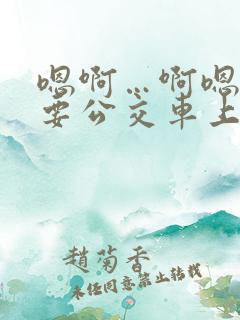 嗯啊…啊嗯
要公交车上
趙菊香
未经同意禁止转载